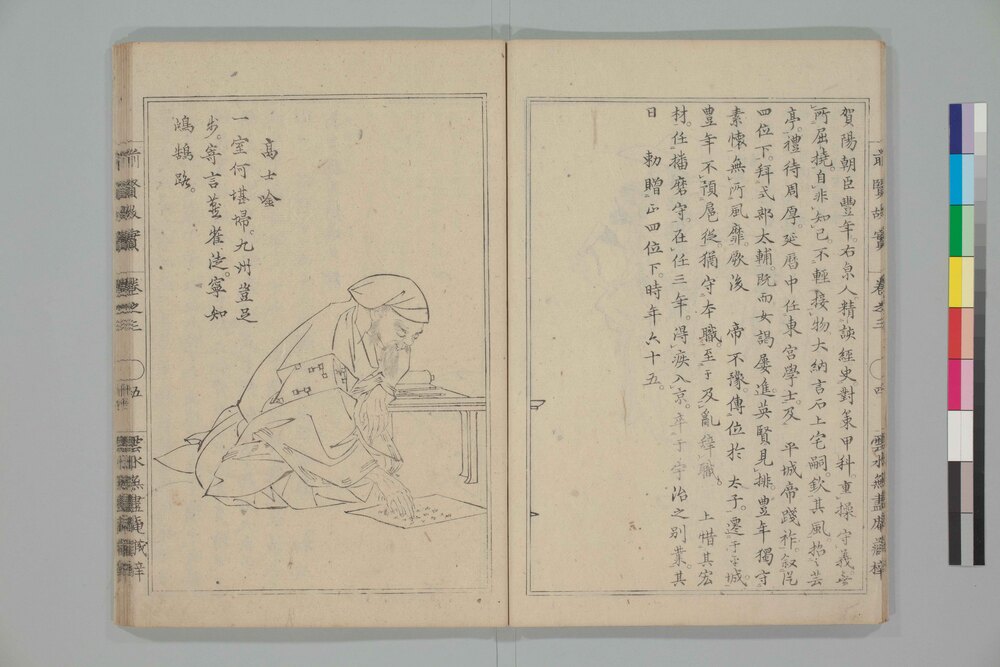 賀陽朝臣豊年。右京人。精談經史。對策甲科。重操守義。無
所屈撓。自非知己。不輕接物。大納言石上宅嗣。欽其風招之芸
亭。禮待周厚。延曆中任東宮學士。及 平城帝踐祚。敘從
四位下。拜式部大輔。既而女謁屢進。英賢見排。豊年獨守
素懷。無所風靡。厥後 帝不豫。傳位於 太子。遷于平城。
豊年不預扈從。猶守本職。至于及亂辭職。 上惜其宏
材。任播磨守。在任三年。得疾入京。卒于宇治之別業。其
日 勅贈正四位下。時年六十五。
前賢故實 卷之三 四 雲水無盡庵藏梓
高士吟
一室何堪掃。九州豈足
步。寄言燕雀徒。寧知
鴻鵠路。
前賢故實 卷之三 五 雲水無盡庵藏梓